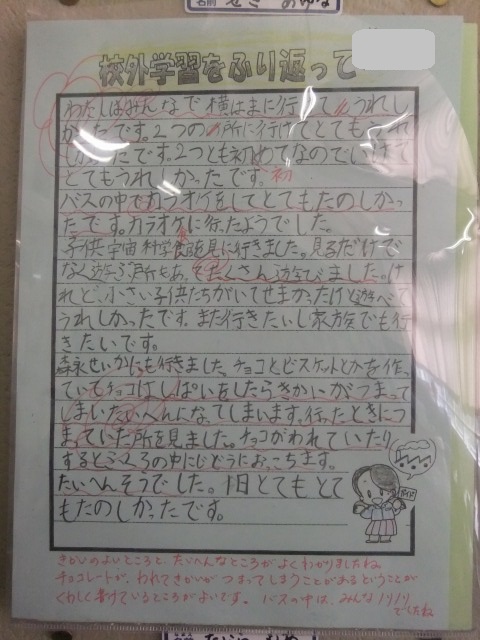 名前
校外学習をふり返って
わたしはみんなで横はまに行けてうれし
かったです。2つの所に行けてとてもうれ
しかったです。2つとも初めてなので行けて
とてもうれしかったです。初
バスの中でカラオケをしてとてもたのしかっ
たです。カラオケに行ったようでした。
子供宇宙科学館を見に行きました。見るだけで
なく遊ぶ所もあったくさん遊びました。け
れど、小さい子供たちがいてせまかったけど遊べて
うれしかったです。また行きたいし家族でも行
きたいです。
森永せいかにも行きました。チョコとビスケットとかを作っ
ていてもチョコはしっぱいをしたらきかいがつまって
しまいたいへんになってしまいます。行ったときにつ
まっていた所を見ました。チョコがわれていたり
するところの中に
たいへんそうでした。1日とてもとて
もたのしかったです。
きかいのよいところと、たいへんなところがよくわかりましたね
チョコレートが、われてきかいがつまってしまうことがあるということが
くわしく書けているところがよいです。バスの中は、みんなノリノリ
でしたね